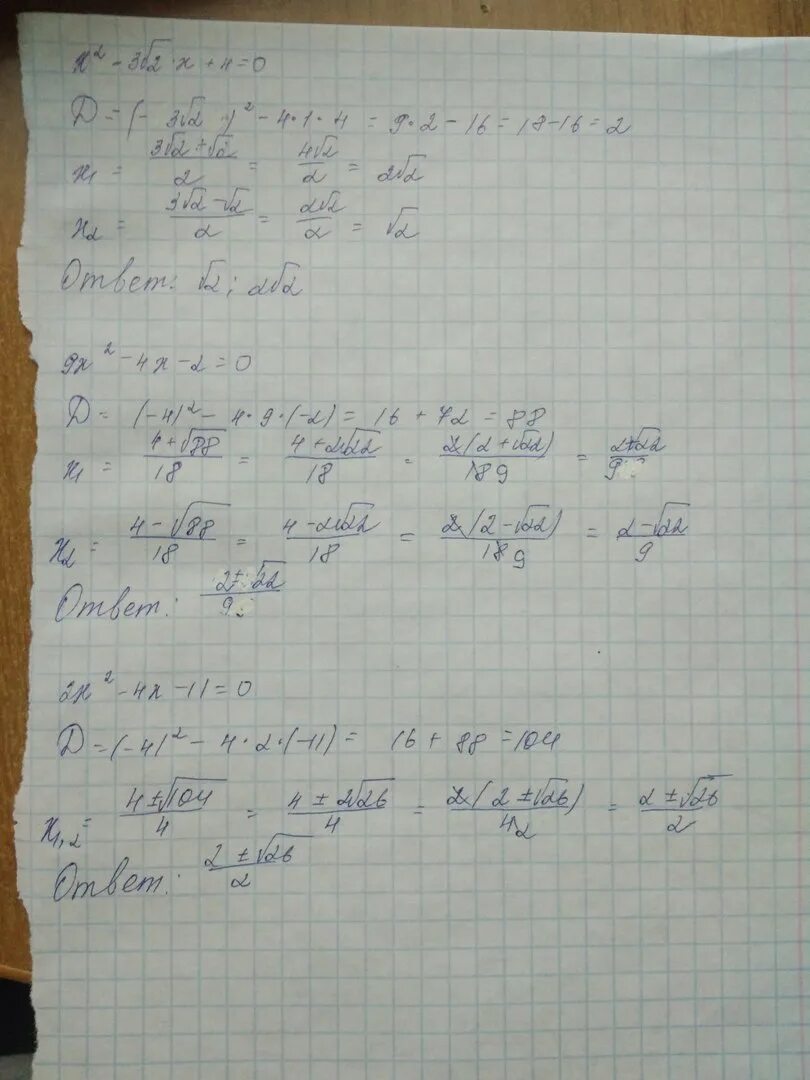 x² - 3√2 · x + 4 = 0
D = (- 3√2)² - 4·1·4 = 9·2 - 16 = 18 - 16 = 2
x₁ = (3√2 + √2)/2 = 4√2/2 = 2√2
x₂ = (3√2 - √2)/2 = 2√2/2 = √2
Ответ: √2; 2√2
9x² - 4x - 2 = 0
D = (-4)² - 4·9·(-2) = 16 + 72 = 88
x₁ = (4 + √88)/18 = (4 + 2√22)/18 = 2(2 + √22)/18 9 = (2 + √22)/9
x₂ = (4 - √88)/18 = (4 - 2√22)/18 = 2(2 - √22)/18 9 = (2 - √22)/9
Ответ: (2 ± √22)/9
2x² - 4x - 11 = 0
D = (-4)² - 4·2·(-11) = 16 + 88 = 104
x₁,₂ = (4 ± √104)/4 = (4 ± 2√26)/4 = 2(2 ± √26)/4 2 = (2 ± √26)/2
Ответ: (2 ± √26)/2